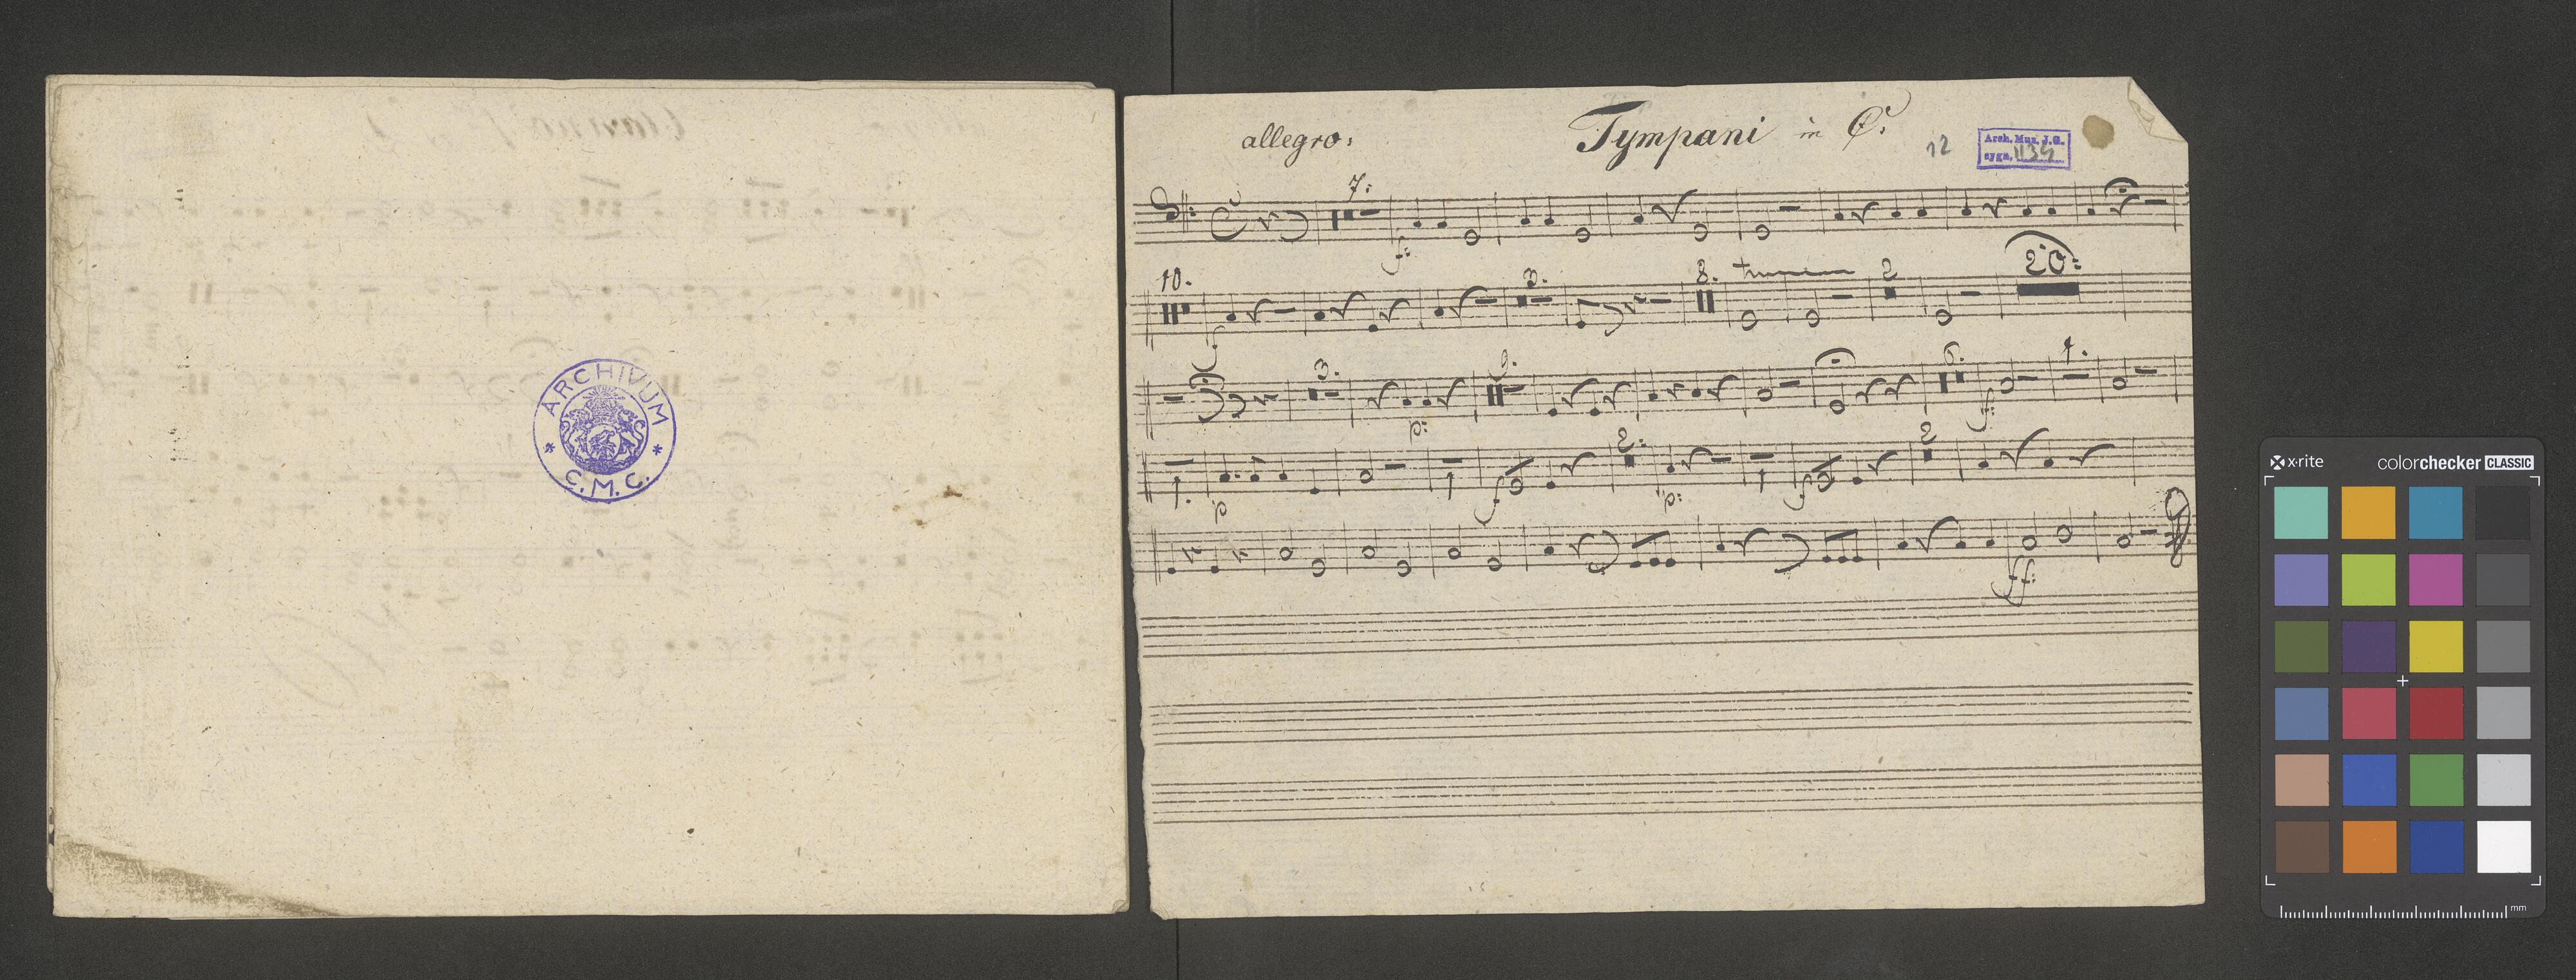 ARCHIVUM
* C. M. C. *
allegro:
Tympani in C:
12
Arch. Mus. J. G.
sygn. 1134
7:
f:
10.
3.
8.
2
20:
f
3.
9.
6.
1.
p:
f:
2.
2
p
f
p:
f
ff:
x·rite
colorchecker CLASSIC
mm